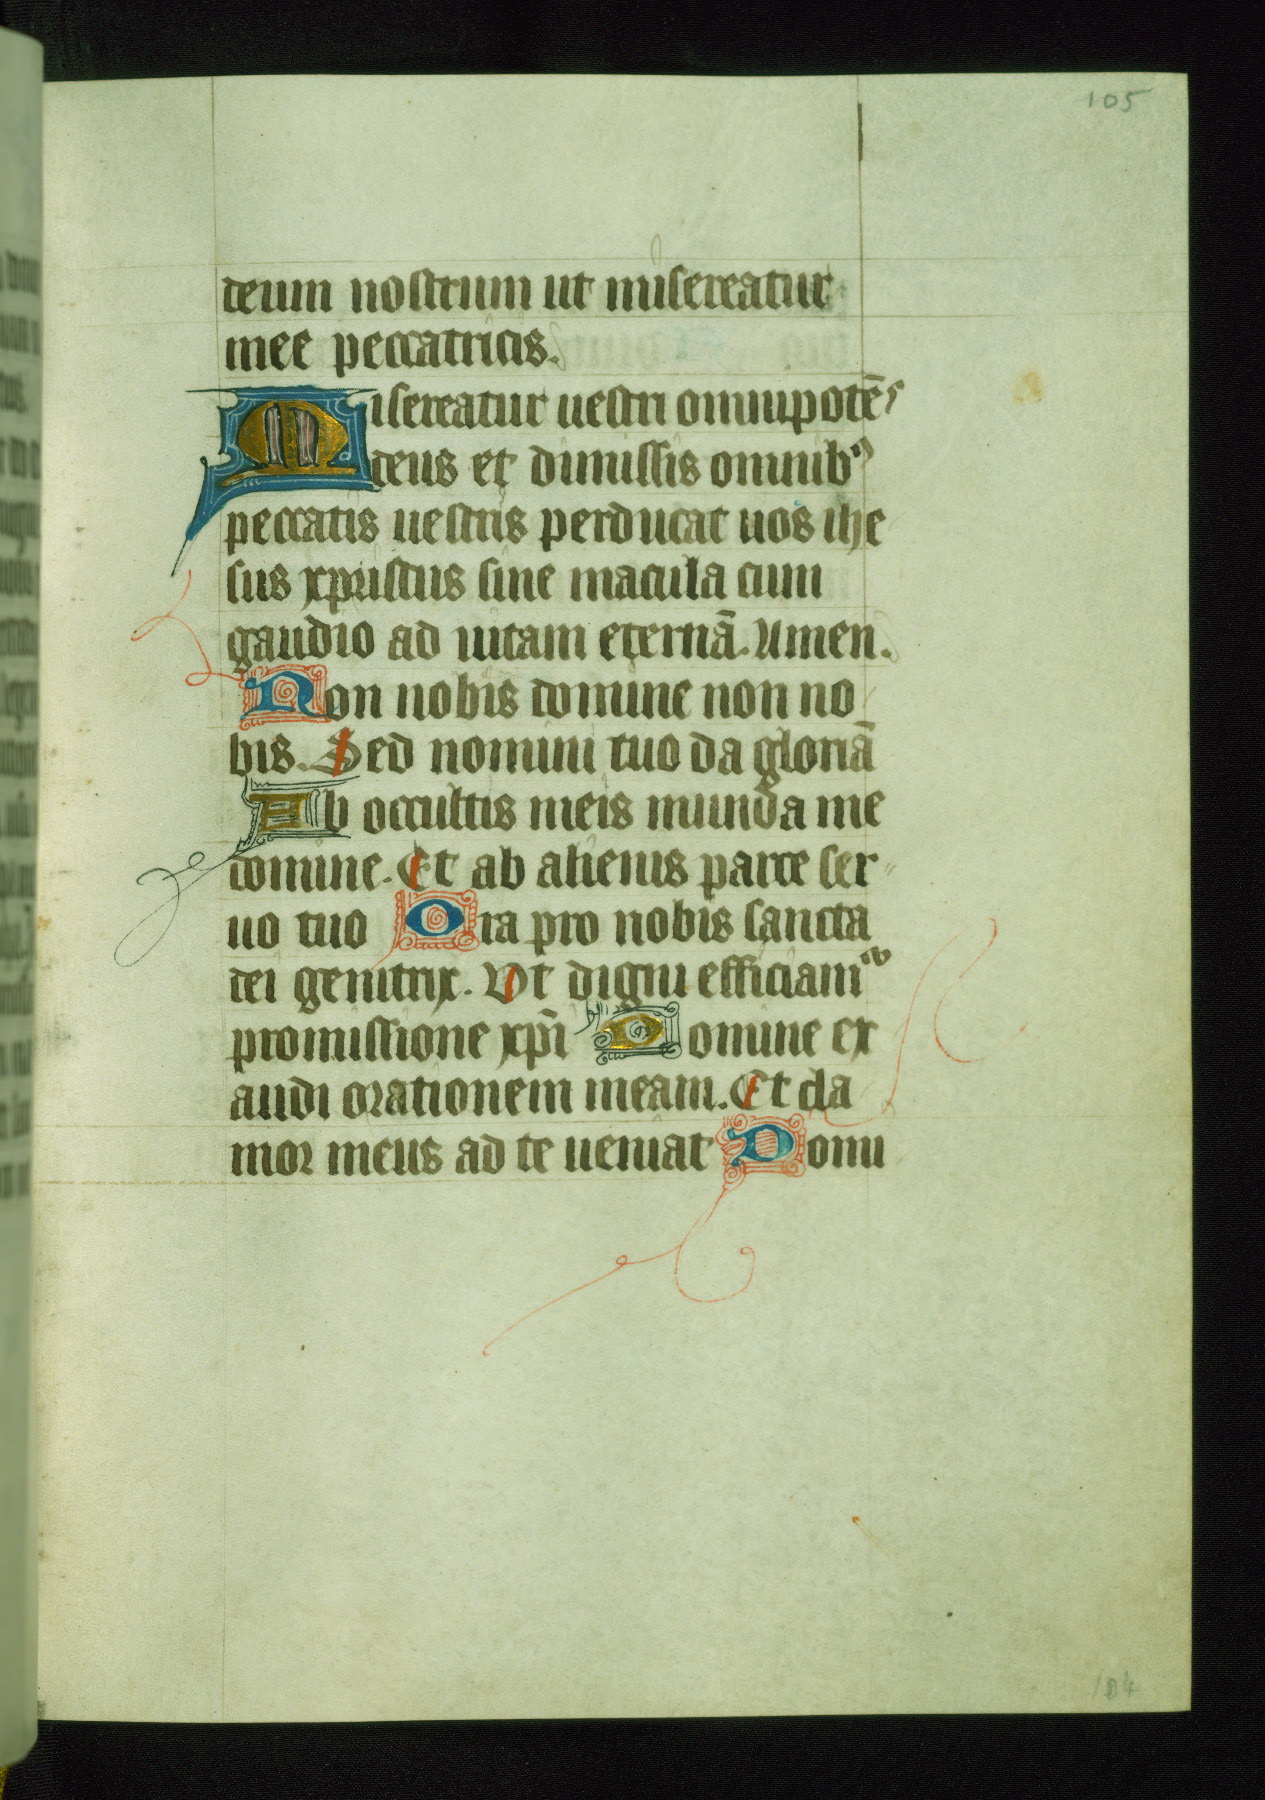 105
deum nostrum ut misereatur
mee peccatricis.
Misereatur uestri omnipotēs
deus et dimissis omnibꝰ
peccatis uestris perducat uos ihe
sus xpristus sine macula cum
gaudio ad uitam eternā. Amen.
Non nobis domine non no
bis. Sed nomini tuo da gloriā
Ab occultis meis munda me
domine. Et ab alienis parce ser
uo tuo Ora pro nobis sancta
dei genitrix. Vt digni efficiamᵘʳ
promissione xp̄i Domine ex
audi orationem meam. Et cla
mor meus ad te ueniat Domi
184